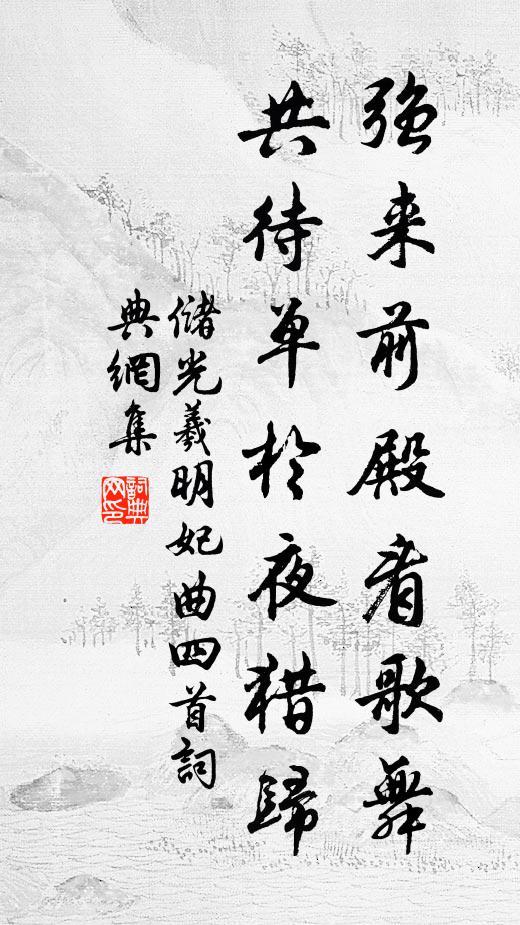 强来前殿看歌舞
共待单於夜猎歸
儲光羲明妃曲四首詞
典網集
詞典網印